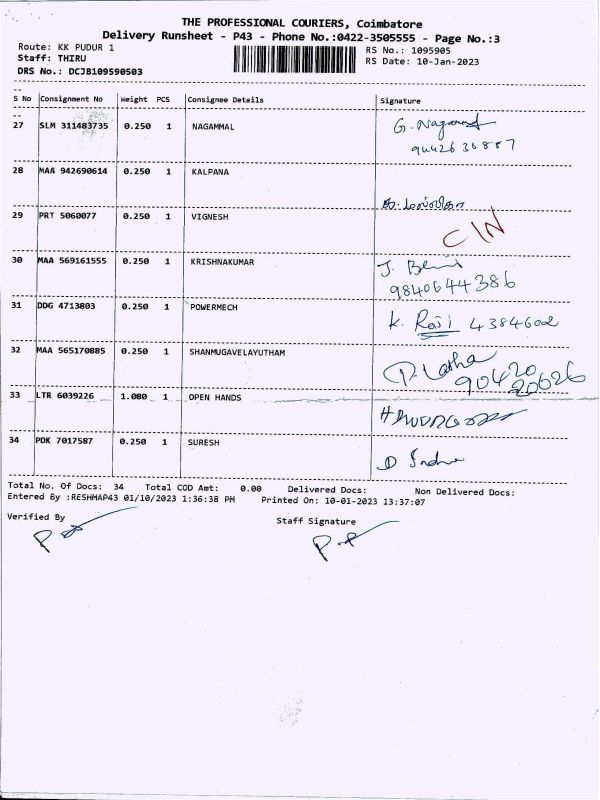 THE PROFESSIONAL COURIERS, Coimbatore
Delivery Runsheet - P43 - Phone No.:0422-3505555 - Page No.:3
Route: KK PUDUR 1
RS No.: 1095905
Staff: THIRU
RS Date: 10-Jan-2023
DRS No.: DCJB109590503
S No Consignment No Weight PCS Consignee Details Signature
27 SLM 311483735 0.250 1 NAGAMMAL G. Nagammal
9442636887
28 MAA 942690614 0.250 1 KALPANA
29 PRT 5060077 0.250 1 VIGNESH CIN
30 MAA 569161555 0.250 1 KRISHNAKUMAR J.
9840644386
31 DDG 4713803 0.250 1 POWERMECH K. Raji 43846002
32 MAA 565170885 0.250 1 SHANMUGAVELAYUTHAM P. Latha
90420
20626
33 LTR 6039226 1.080 1 OPEN HANDS
34 PDK 7017587 0.250 1 SURESH
Total No. Of Docs: 34 Total COD Amt: 0.00 Delivered Docs: Non Delivered Docs:
Entered By :RESHMAP43 01/10/2023 1:36:38 PM Printed On: 10-01-2023 13:37:07
Verified By
Staff Signature